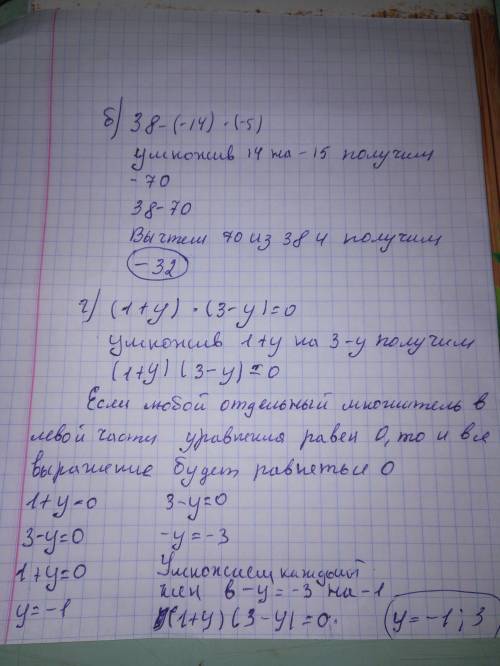 б) 38-(-14)·(-5)
умножив 14 на -15 получим
-70
38-70
Вычтем 70 из 38 и получим
-32
г) (1+y)·(3-y)=0
умножив 1+y на 3-y получим
(1+y)(3-y)=0
Если любой отдельный множитель в
левой части уравнения равен 0, то и все
выражение будет равняться 0
1+y=0 3-y=0
3-y=0 -y=-3
1+y=0 Умножием каждый
y=-1 член в -y=-3 на -1
(1+y)(3-y)=0. y=-1; 3